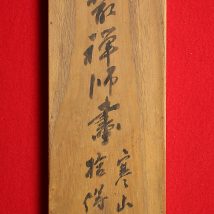 禅師畫
寒山
拾得